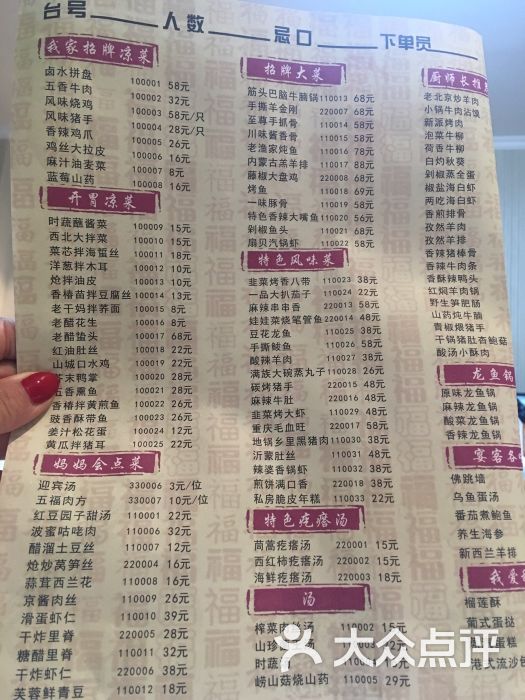 台号 人数 忌口 下单员
我家招牌凉菜
卤水拼盘 100001 58元
五香牛肉
风味烧鸡 100002 32元
风味猪手 100003 58元/只
香辣鸡爪 100004 28元/只
鸡丝大拉皮 100005 26元
麻汁油麦菜 100006 16元
蓝莓山药 100007 18元
100008 16元
开胃凉菜
时蔬蘸酱菜 100009 15元
西北大拌菜 100010 15元
菜芯拌海蜇丝 100011 18元
洋葱拌木耳 100012 10元
炝拌油皮
香椿苗拌豆腐丝 100014 13元
老干妈拌荞面 100015 8元
老醋花生 100016 8元
老醋蛰头 100017 68元
红油肚丝 100018 22元
山城口水鸡 100019 22元
芥末鸭掌 100020 28元
五香熏鱼 100021 28元
香椿拌黄煎鱼 100022 26元
豉香酥带鱼 100023 26元
姜汁松花蛋 100024 12元
黄瓜拌猪耳 100025 22元
妈妈会点菜
迎宾汤 330006 3元/位
五福肉方 330007 10元/位
红豆园子甜汤 110005 22元
波蜜咕咾肉 110006 32元
醋溜土豆丝 110007 12元
炝炒莴笋丝 220004 16元
蒜茸西兰花 110008 16元
京酱肉丝 110009 26元
滑蛋虾仁 110010 39元
干炸里脊 220005 28元
糖醋里脊 110011 28元
干炸虾仁 220006 38元
芙蓉鲜青豆 110012 22元
招牌大菜
筋头巴脑牛腩锅 110013 68元
手撕羊金刚 220007 68元
至尊手抓骨 110014 58元
川味酱香骨 110015 58元
老渔家炖鱼 110016 58元
内蒙古羔羊排 110017 68元
藤椒大盘鸡 220008 68元
烤鱼 110018 58元
一味豚骨 110019 58元
特色香辣大嘴鱼 110020 58元
剁椒鱼头 110021 58元
扇贝汽锅虾 110022 58元
特色风味菜
韭菜烤香八带 110023 38元
一品大扒茄子 110024 22元
麻辣串串香 220009 58元
娃娃菜烧笔管鱼 220010 48元
豆花龙鱼 110025 38元
手撕鲅鱼 110026 58元
酸辣羊肉 110027 38元
满族大碗蒸丸子 110028 36元
碳烤猪手 220011 48元
麻辣牛肚 220012 48元
韭菜烤大虾 110029 48元
重庆毛血旺 220013 38元
地锅乡里黑猪肉 110030 38元
沂蒙肚丝 110031 48元
辣婆香锅虾 110032 38元
煎饼满口香 220014 38元
私房脆皮年糕 110033 22元
特色疙瘩汤
茼蒿疙瘩汤 220001 15元
西红柿疙瘩汤 220002 15元
海鲜疙瘩汤 220003 18元
汤
榨菜肉丝汤 110001 15元
崂山菇烧山药 110051 29元
厨师长推
老北京炒羊肉
小锅牛肉沾馍
新派烤肉
泡菜牛柳
荷香牛柳
白灼秋葵
剁椒蒸金蛋
椒盐海白虾
两吃海白虾
香煎排骨
孜然羊排
孜然羊肉
香辣猪棒骨
香辣牛肉条
香酥辣鸭头
红焖羊肉锅
野生笋肥肠
山药炖牛腩
青椒煨猪手
干锅猪肚杏鲍菇
酸汤小酥肉
龙鱼锅
原味龙鱼锅
麻辣龙鱼锅
酸菜龙鱼锅
香辣龙鱼锅
宴客各
佛跳墙
乌鱼蛋汤
番茄煮鲍鱼
养生海参
新西兰羊排
我爱
榴莲酥
葡式蛋挞
大众点评